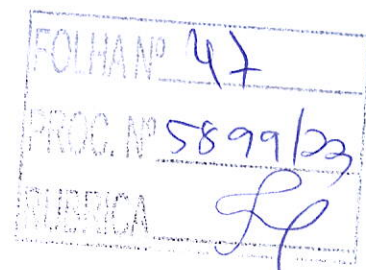 FOLHA Nº 47
PROC. Nº 5899/23
RUBRICA